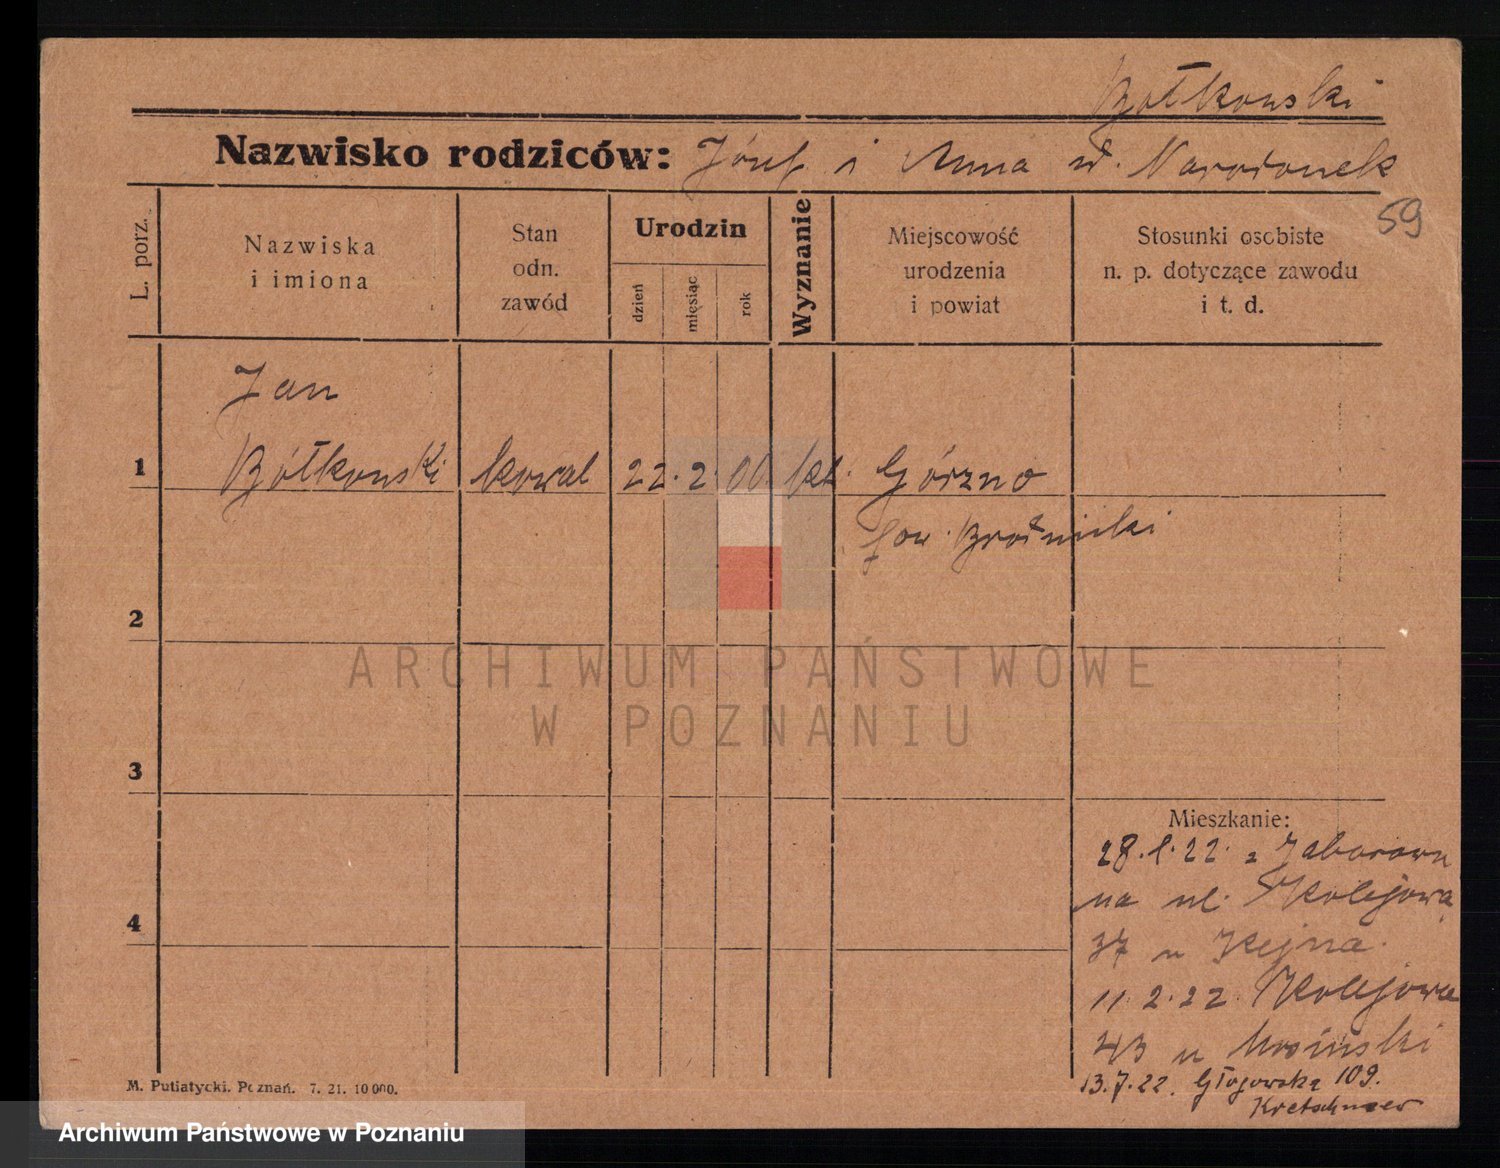 Bółkowski
Nazwisko rodziców: Józef i Anna
59
L. porz.
Nazwiska
i imiona
Stan
odn.
zawód
Urodzin
dzień
miesiąc
rok
Wyznanie
Miejscowość
urodzenia
i powiat
Stosunki osobiste
n. p. dotyczące zawodu
i t. d.
Jan
1 Bółkowski kowal 22. 2. 00. kt. Górzno
pow. Brodnicki
2
3
4
ARCHIWUM PAŃSTWOWE
W POZNANIU
Mieszkanie:
28.1.22. z Zaborowa
na ul. Kolejowa
37 u Kejna.
11.2.22. Kolejowa
43 u
13.7.22. Głogowska 109.
Kretschmer
M. Putiatycki. Poznań. 7. 21. 10 000.
Archiwum Państwowe w Poznaniu